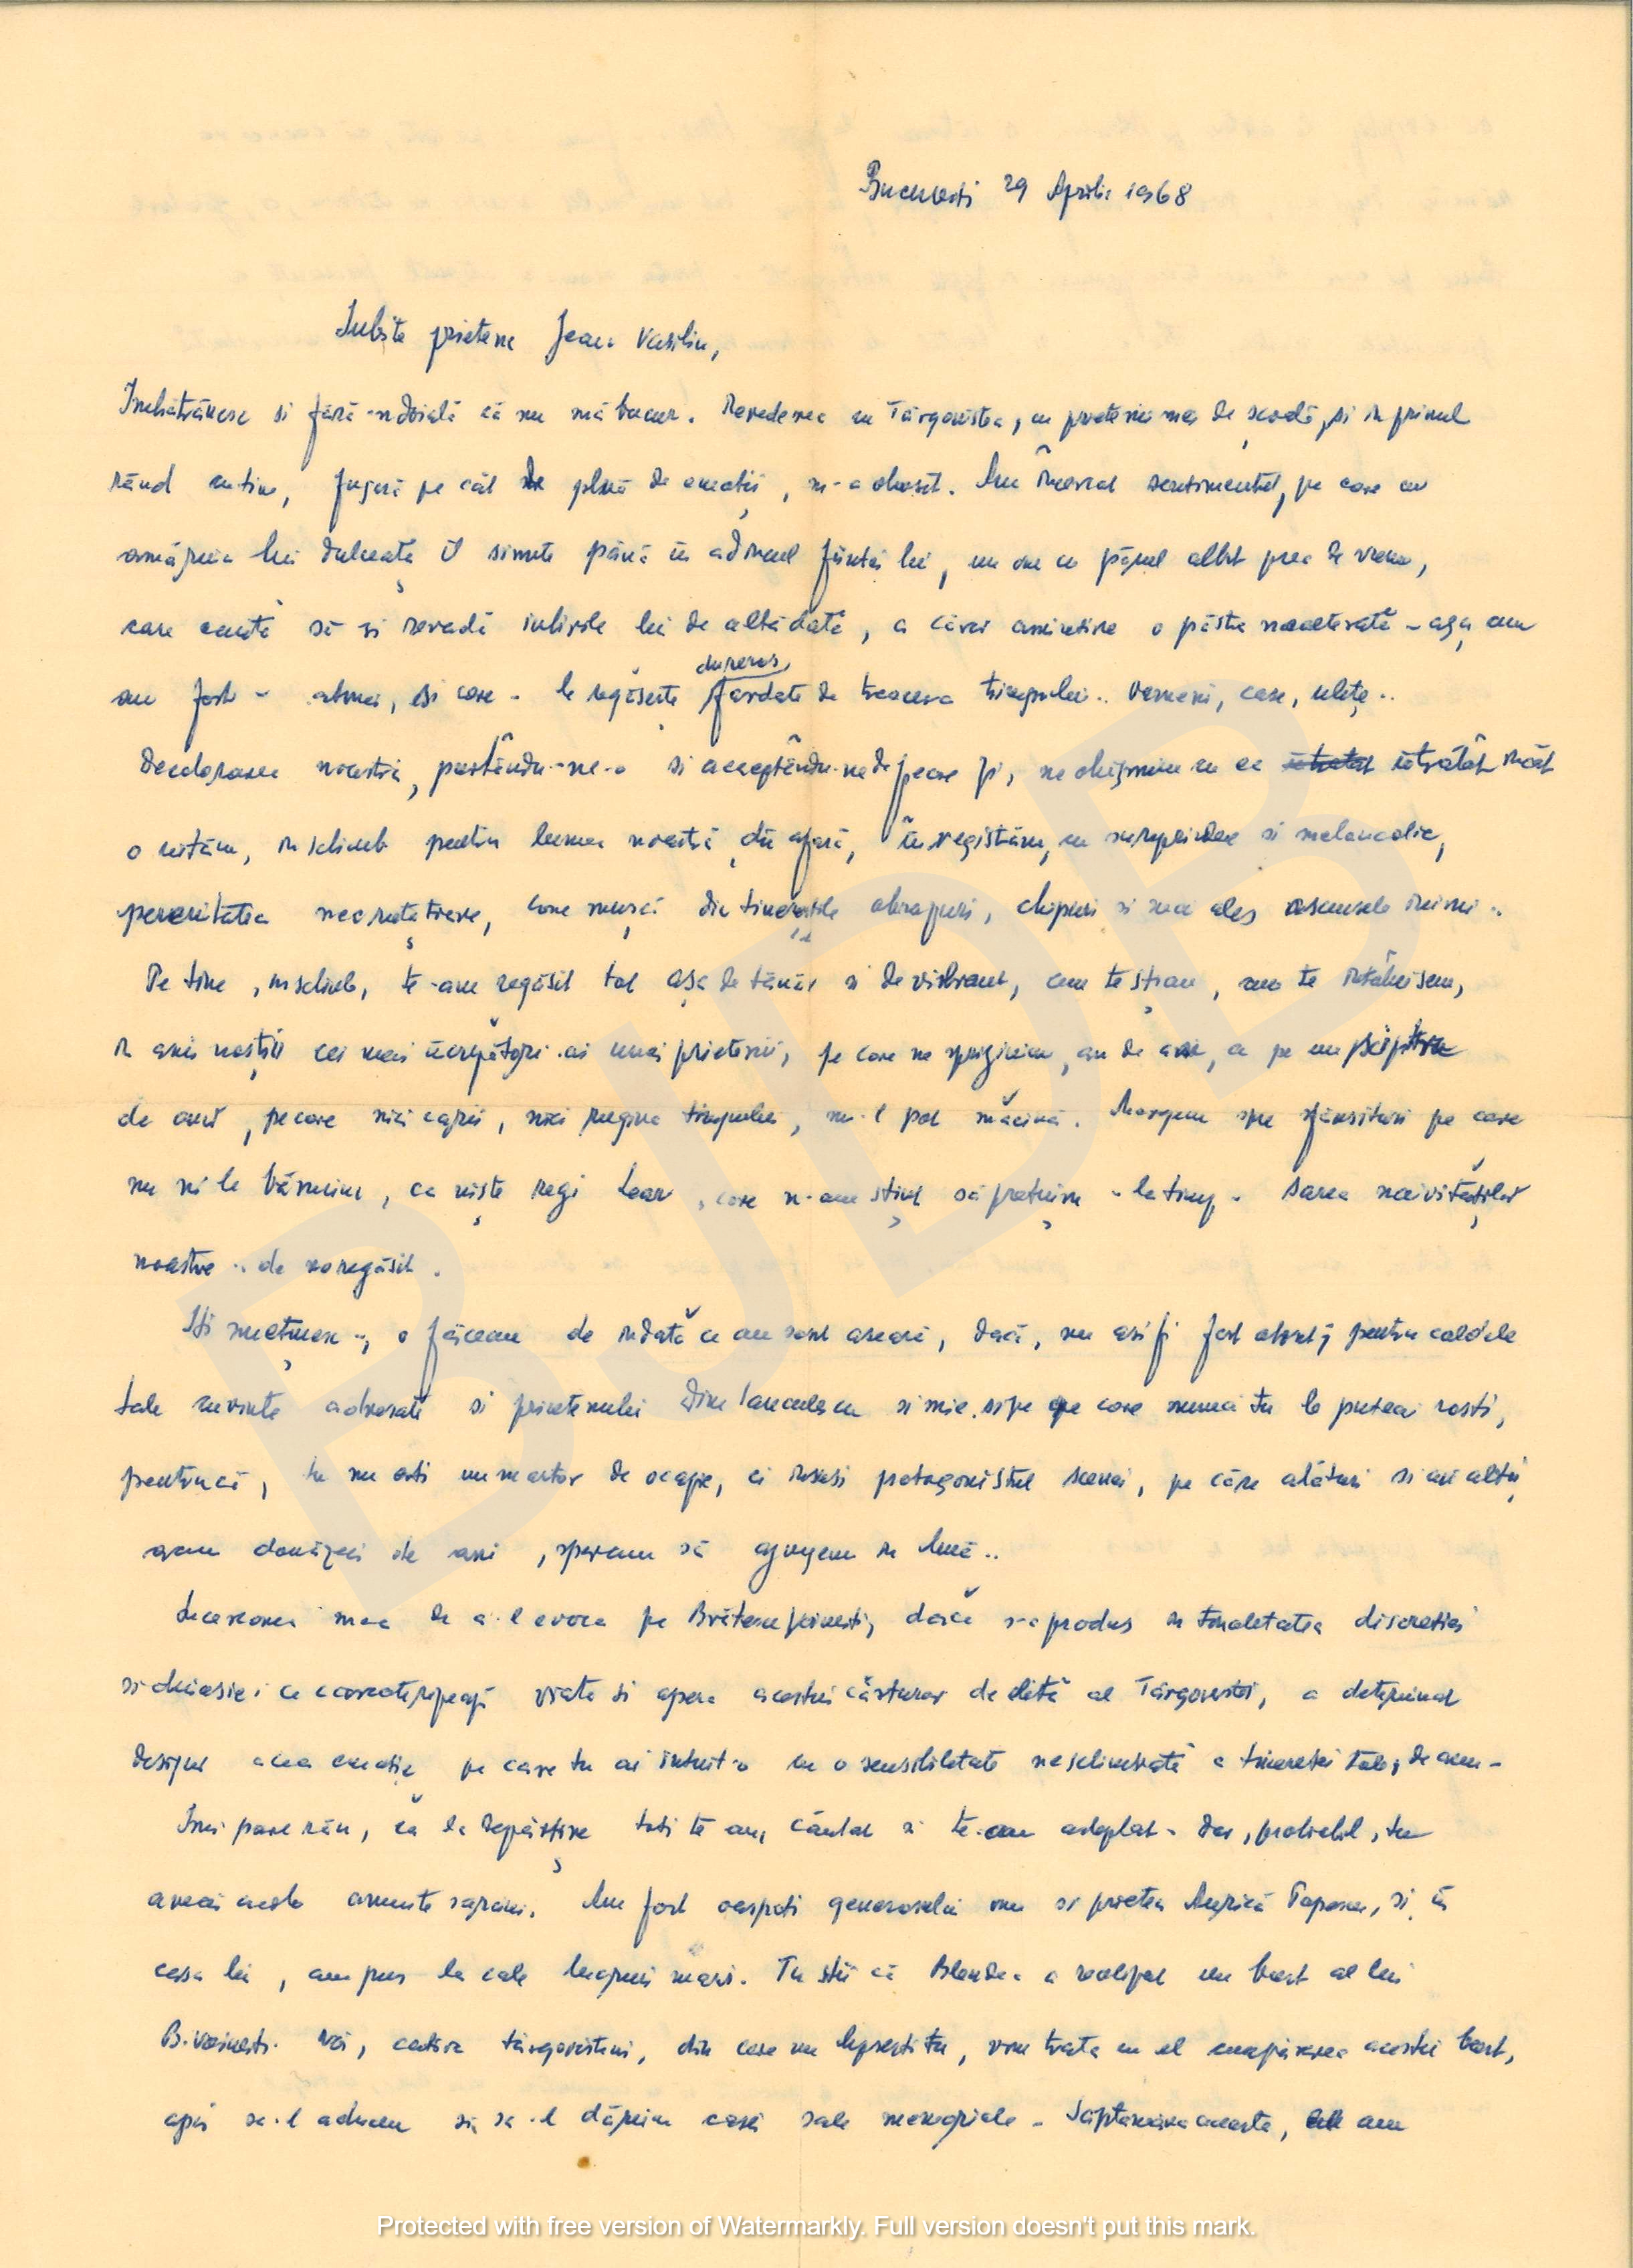 București 29 Aprilie 1968
Iubite prietene Jean Vasiliu,
Îmbătrânesc și fără-ndoială că nu mă bucur. Revederea cu Târgoviștea, cu prietenii mei de școală, și în primul
rând cu tine, fugară pe cât de plină de emoții, m-a obosit. Am încercat sentimentul, pe care cu
amăruia lui dulceață îl simte până în adâncul ființei lui, un om cu părul albit prea de vreme,
care caută să-și revadă iubirile lui de altădată, a căror amintire o păstra nealterată - așa cum
au fost - atunci, și care - le regăsește dureros fardate de trecerea timpului.. Oameni, case, ulițe..
Decolorarea noastră, purtându-ne-o și acceptându-ne de fiecare zi, ne obișnuim cu ea într-atât încât
o uităm, în schimb pentru lumea noastră din afară, înregistrăm, cu surprindere și melancolie,
perenitatea necruțătoare, care mușcă din tinerețile obrazuri, chipuri și mai ales ascunsele inimi..
Pe tine, în schimb, te-am regăsit tot așa de tânăr și de vibrant, cum te știam, cum te întâlnisem,
în anii noștri cei mai încrezători ai unei prietenii, pe care ne sprijinim, an de an, ca pe un sceptru
de aur, pe care nici carii, nici rugina timpului, nu-l pot măcina. Mergem spre sfârșituri pe care
nu ni le bănuim, ca niște regi Lear, care n-am știut să prețuim - la timp - sarea naivităților
noastre .. de neregăsit.
Îți mulțumesc -, o făceam de îndată ce am sosit aseară, dacă, nu aș fi fost obosit, pentru caldele
tale cuvinte adresate și prietenului Dinu Ianculescu și mie, și pe care numai tu le puteai rosti,
pentrucă, tu nu ești un martor de ocazie, ci însuși protagonistul scenei, pe care alături și cu alții,
acum douăzeci de ani, speram să ajungem în lună..
Încercarea mea de a-l evoca pe Brătescu Voinești, dacă s-a produs în tonalitatea discreției
și duioșiei ce caracterizează viața și opera acestui cărturar de elită al Târgoviștei, a determinat
desigur acea emoție pe care tu ai intuit-o cu o sensibilitate neschimbată a tinereții tale, de acum -
Îmi pare rău, că la despărțire toți te-am căutat și te-am așteptat - Dar, probabil, tu
aveai acolo anumite sarcini. Am fost oaspeți generosului om și prieten Aurică Popescu, și în
casa lui, am pus la cale lucruri mari. Tu știi că Blendea a realizat un bust al lui
B. Voinești. Noi, câțiva târgovișteni, din care nu lipsești tu, vom trata cu el cumpărarea acestui bust,
apoi să-l aducem și să-l dăruim casei sale memoriale - Săptămâna aceasta, am
Protected with free version of Watermarkly. Full version doesn't put this mark.
BJDB